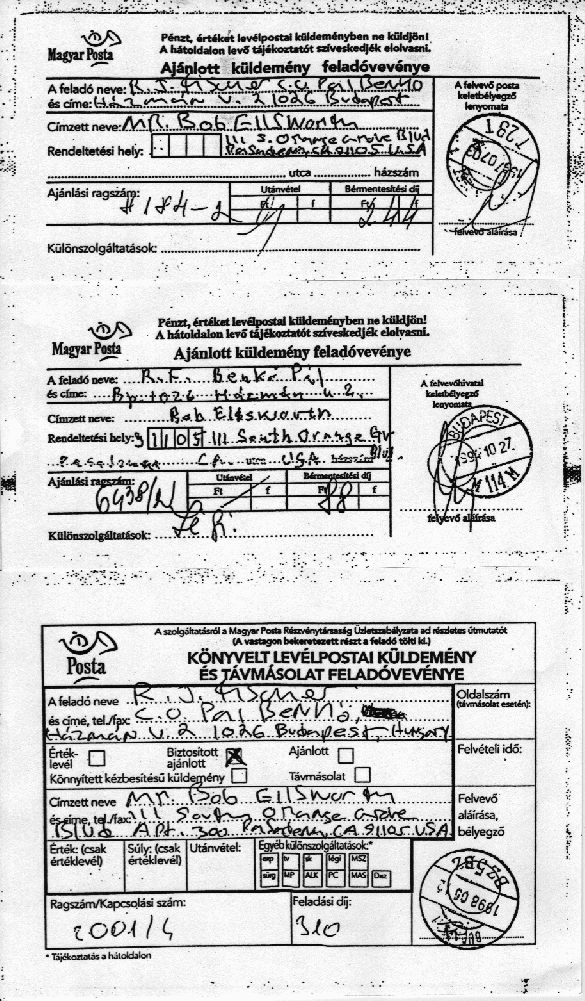 Pénzt, értéket levélpostai küldeményben ne küldjön!
A hátoldalon levő tájékoztatót szíveskedjék elolvasni.
Magyar Posta
Ajánlott küldemény feladóvevénye
A feladó neve: R. J. Fischer c.o. Pal Benko
és címe: Házmán u. 2 1026 Budapest
A felvevő posta keletbélyegző lenyomata
Címzett neve: MR. Bob Ellsworth
Rendeltetési hely: 111 S. Orange Grove Blvd
Pasadena, CA 91105 USA
utca házszám
Ajánlási ragszám: Utánvétel Bérmentesítési díj
Ft f Ft f
184-2 244
felvevő aláírása
Különszolgáltatások:
Pénzt, értéket levélpostai küldeményben ne küldjön!
A hátoldalon levő tájékoztatót szíveskedjék elolvasni.
Magyar Posta
Ajánlott küldemény feladóvevénye
A feladó neve: R.F. Benkő Pál
és címe: Bp 1026 Házmán u 2.
A felvevőhivatal keletbélyegző lenyomata
Címzett neve: Bob Ellsworth
Rendeltetési hely: 91105 111 South Orange Gr
Blvd
Pasadena CA. utca USA házszám
BUDAPEST
10 27
114
Ajánlási ragszám: Utánvétel Bérmentesítési díj
Ft f Ft f
6438 88
felvevő aláírása
Különszolgáltatások:
A szolgáltatásról a Magyar Posta Részvénytársaság Üzletszabályzata ad részletes útmutatót
(A vastagon bekeretezett részt a feladó tölti ki.)
Posta
KÖNYVELT LEVÉLPOSTAI KÜLDEMÉNY
ÉS TÁVMÁSOLAT FELADÓVEVÉNYE
A feladó neve R. J. Fischer
és címe, tel./fax: C.O. Pal Benko,
Házmán u. 2 1026 Budapest, Hungary
Oldalszám
(távmásolat esetén):
Érték-levél Biztosított ajánlott Ajánlott
Felvételi idő:
Könnyített kézbesítésű küldemény Távmásolat
Címzett neve Mr. Bob Ellsworth
és címe, tel./fax: 111 South Orange Grove
Blvd Apt. 300 Pasadena, CA 91105 USA
Felvevő aláírása, bélyegző
Érték: (csak értéklevél) Súly: (csak értéklevél) Utánvétel: Egyéb különszolgáltatások:*
exp tv sk légi MSZ
sürg MP ALK PC MAS Díez
Ragszám/Kapcsolási szám: Feladási díj:
2001/4 310
1998 05
* Tájékoztatás a hátoldalon